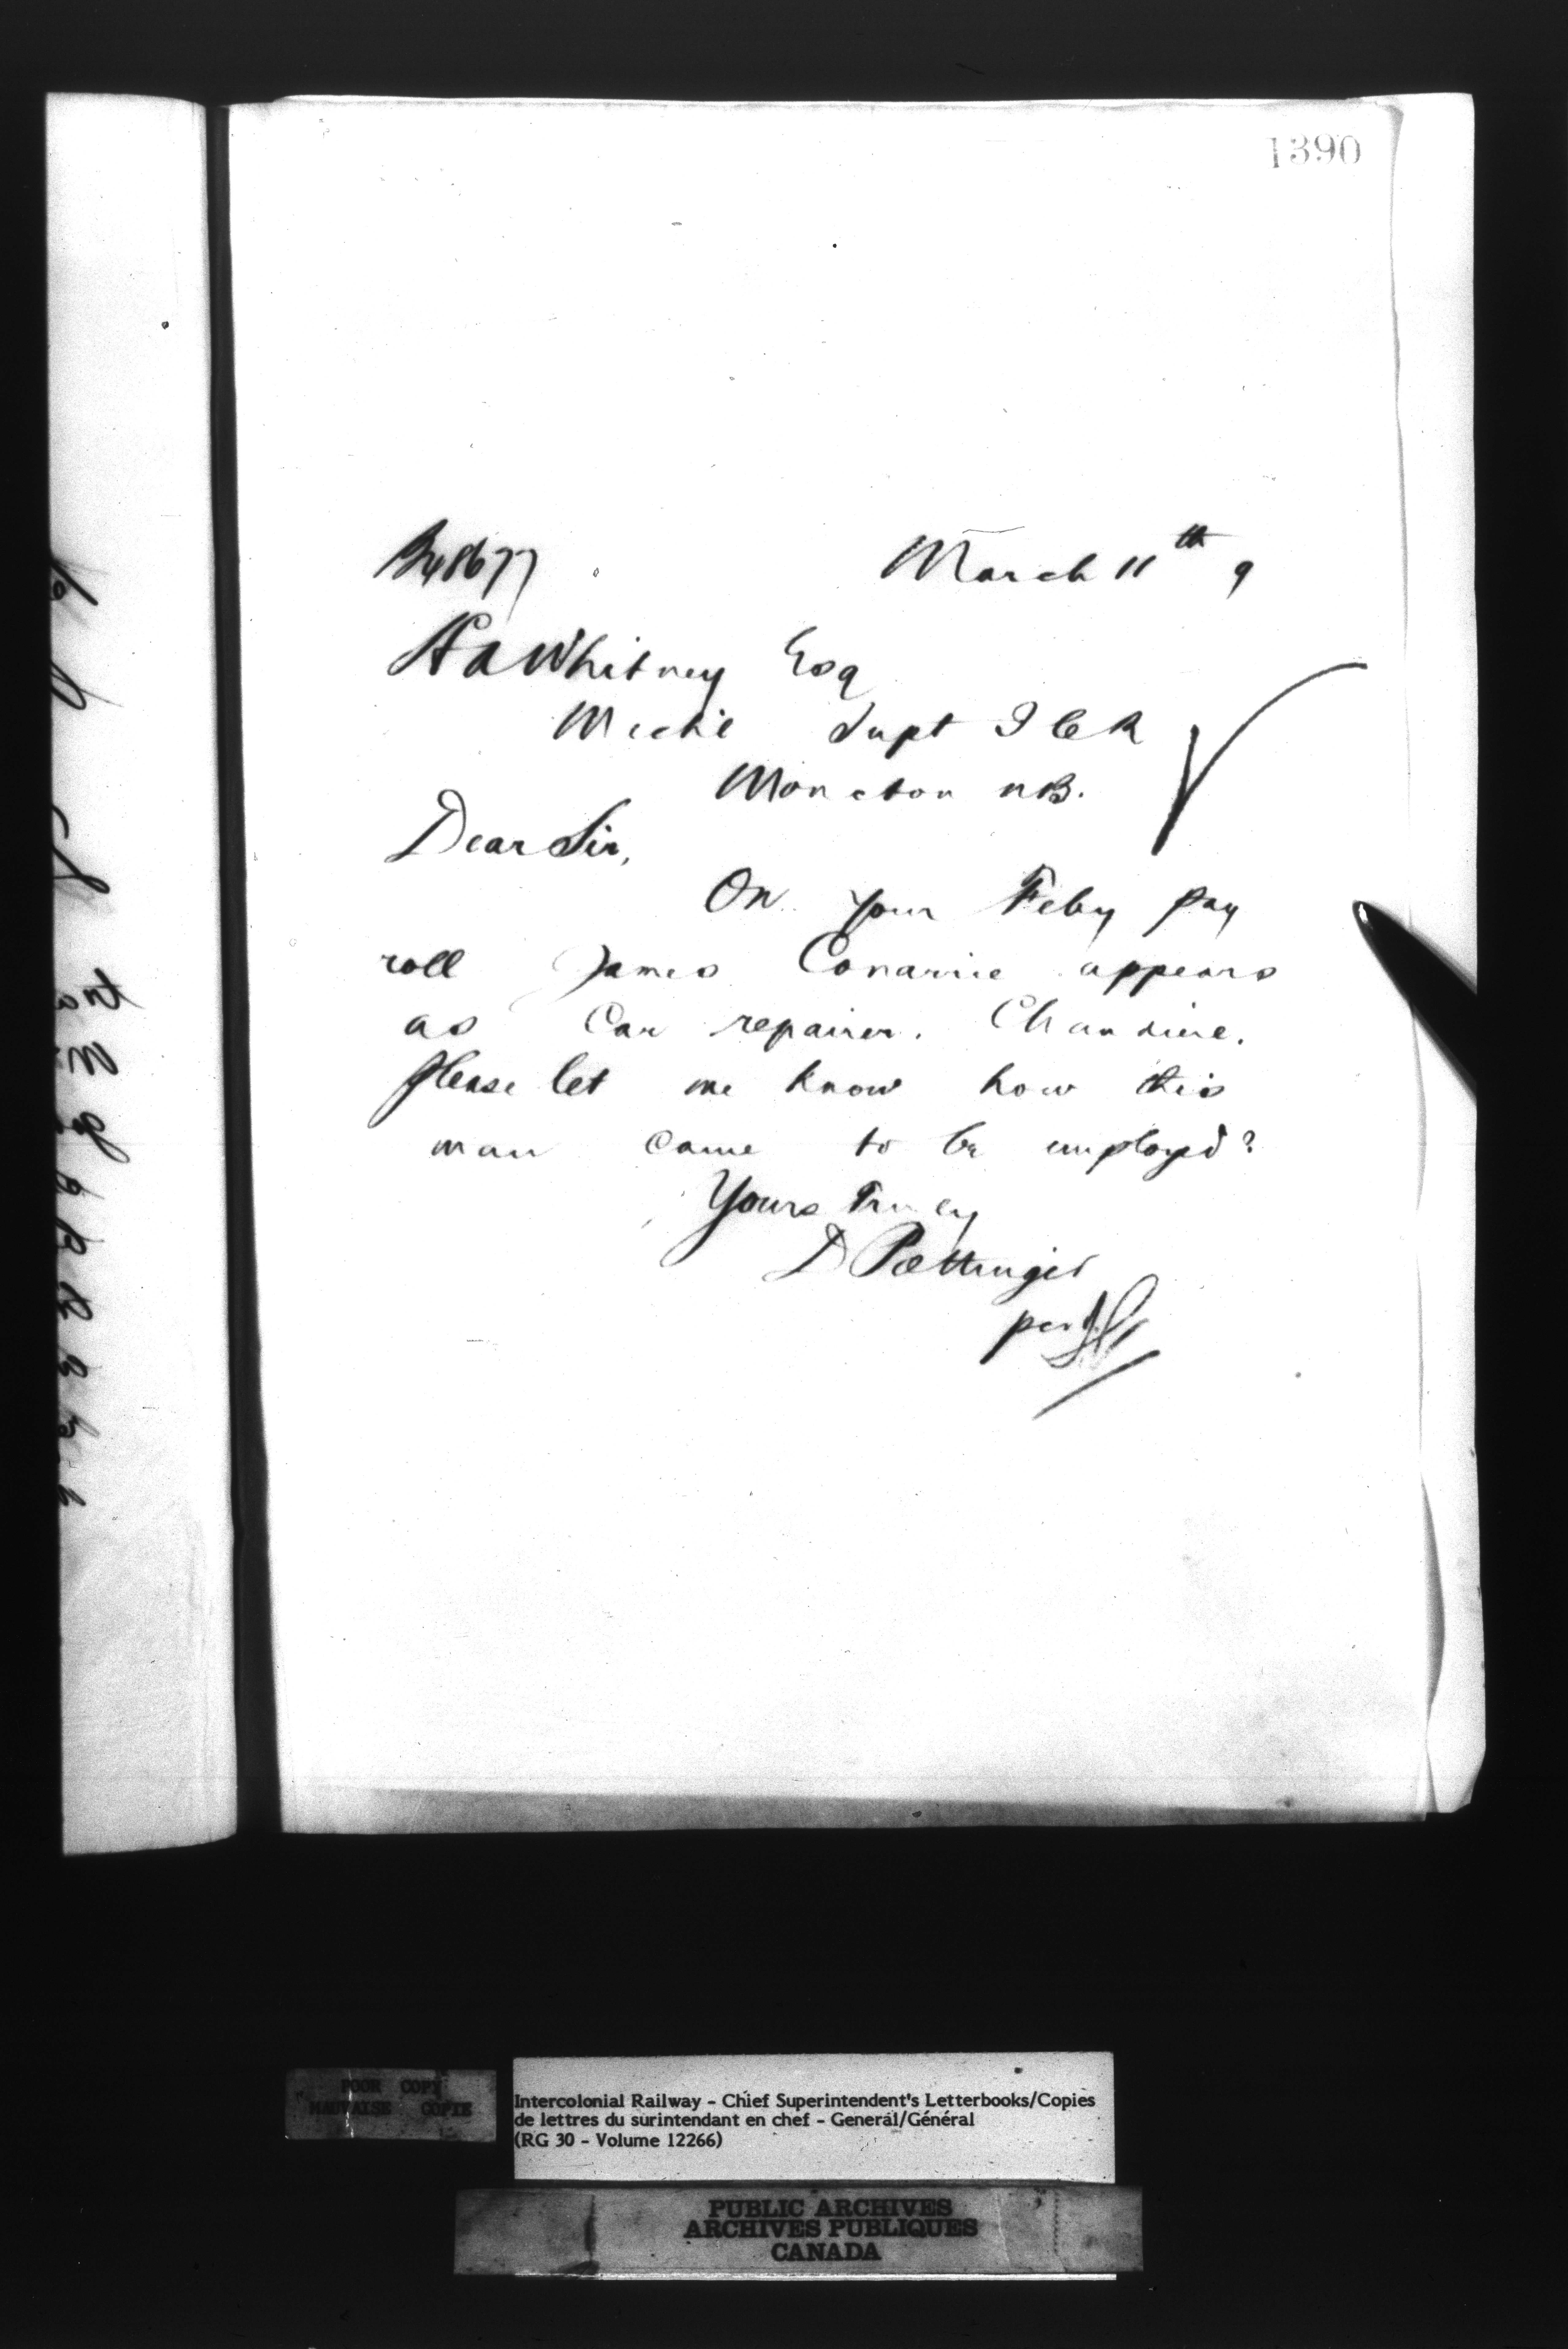 1390
March 11th 9
H A Whitney Esq
Mechl Supt I C R
Moncton N.B.
Dear Sir,
On your Feby pay
roll James appears
as Car repairer. Chaudiere.
Please let me know how this
man came to be employed?
Yours Truly
D Pottinger
per
POOR COPY
MAUVAISE COPIE
Intercolonial Railway - Chief Superintendent's Letterbooks/Copies
de lettres du surintendant en chef - General/Général
(RG 30 - Volume 12266)
PUBLIC ARCHIVES
ARCHIVES PUBLIQUES
CANADA